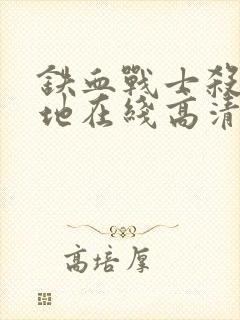 鉄血戰士殺
地在綫高清
高培厚